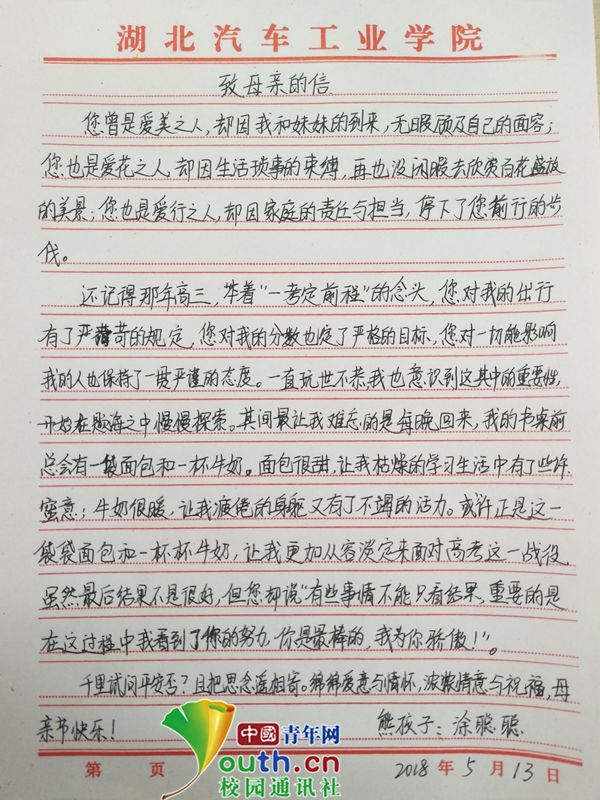 湖北汽车工业学院
致母亲的信
您曾是爱美之人,却因我和妹妹的到来,无暇顾及自己的面容;
您也是爱花之人,却因生活琐事的束缚,再也没闲暇去欣赏百花盛放
的美景;您也是爱行之人,却因家庭的责任与担当,停下了您前行的步
伐。
还记得那年高三,带着"一考定前程"的念头,您对我的出行
有了严苛的规定,您对我的分数也定了严格的目标,您对一切能影响
我的人也保持了一贯严谨的态度。一直玩世不恭我也意识到这其中的重要性,
开始在题海之中慢慢探索。其间最让我难忘的是每晚回来,我的书桌前
总会有一袋面包和一杯牛奶。面包很甜,让我枯燥的学习生活中有了些许
蜜意;牛奶很暖,让我疲倦的身躯又有了不竭的活力。或许正是这一
袋袋面包和一杯杯牛奶,让我更加从容淡定来面对高考这一战役。
虽然最后结果不是很好,但您却说"有些事情不能只看结果,重要的是
在这过程中我看到了你的努力,你是最棒的,我为你骄傲!"。
千里试问平安否?且把思念遥相寄。绵绵爱意与情怀,浓浓情意与祝福,母
亲节快乐!
熊孩子:涂聪聪
第 页
2018年5月13日
中國青年网
youth.cn
校园通讯社